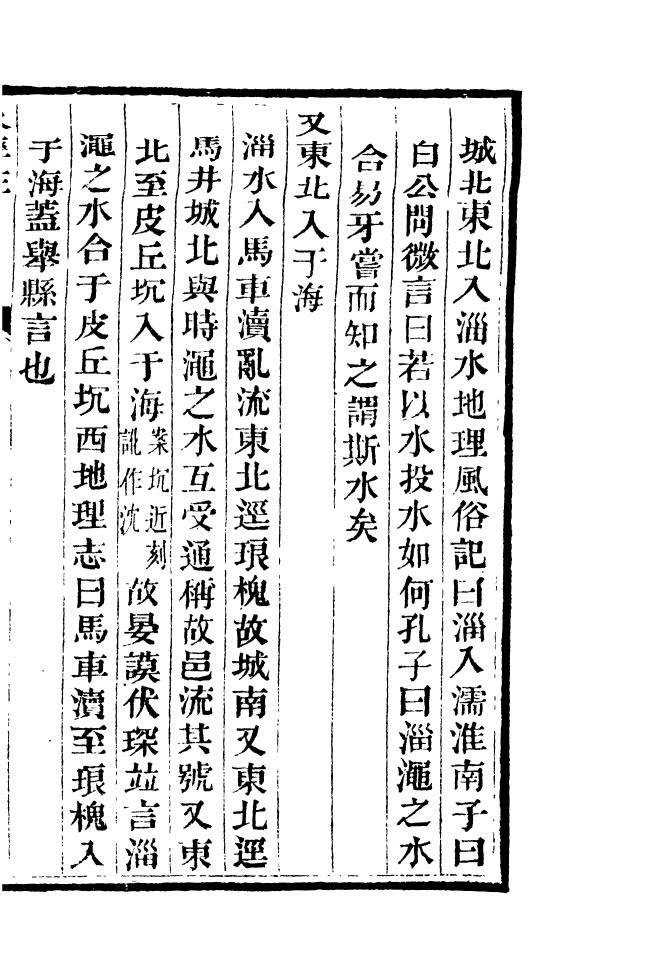 城北東北入淄水地理風俗記曰淄入濡淮南子曰
白公問微言曰若以水投水如何孔子曰淄澠之水
合易牙嘗而知之謂斯水矣
又東北入于海
淄水入馬車瀆亂流東北逕琅槐故城南又東北逕
馬井城北與時澠之水互受通稱故邑流其號又東
北至皮丘坈入于海案坈近刻訛作沈故晏謨伏琛竝言淄
澠之水合于皮丘坈西地理志曰馬車瀆至琅槐入
于海蓋舉縣言也